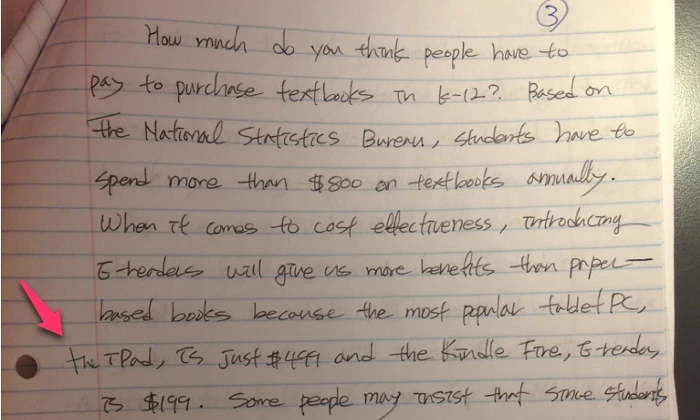 3
How much do you think people have to
pay to purchase textbooks in k-12?. Based on
the National Statistics Bureau, students have to
spend more than $800 on textbooks annually.
When it comes to cost effectiveness, introducing
E-readers will give us more benefits than paper-
based books because the most popular tablet PC,
the iPad, is just $499 and the Kindle Fire, E-reader,
is $199. Some people may insist that since students